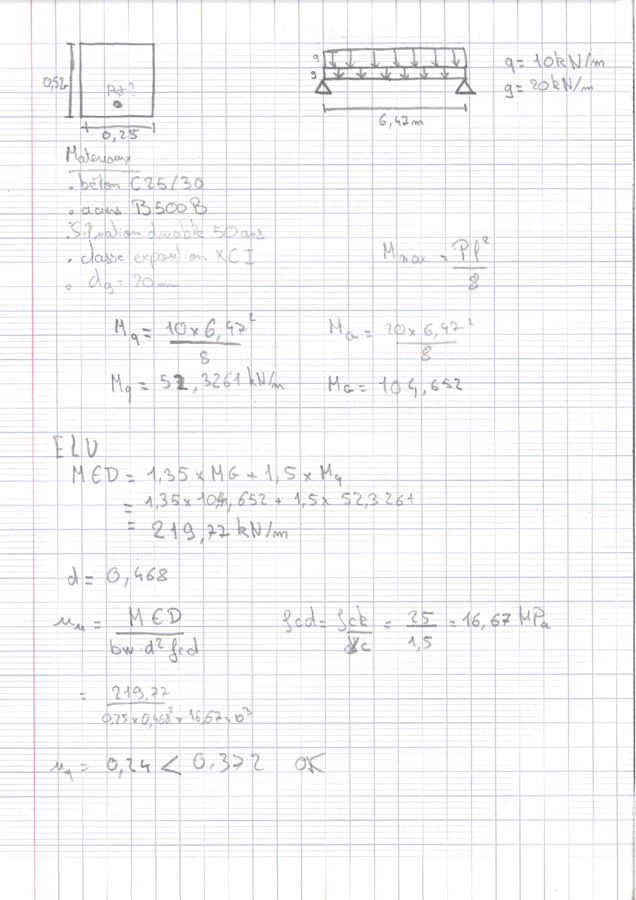 0,52
Ast?
0,25
q
g
6,47m
q = 10kN/m
g = 20kN/m
Materiaux
. béton C25/30
. aciers B500B
. Situation durable 50 ans
. classe exposition XCI
. dg = 20mm
Mmax = Pl²/8
Mq = 10 x 6,47²/8
MG = 20 x 6,47²/8
Mq = 52,3261 kN/m
MG = 104,652
ELU
MED = 1,35 x MG + 1,5 x Mq
= 1,35 x 104,652 + 1,5 x 52,3261
= 219,77 kN/m
d = 0,468
μu = MED/bw·d² fcd
fcd = fck/γc = 25/1,5 = 16,67 MPa
= 219,77/0,25 x 0,468² x 16,67 x 10³
μu = 0,24 < 0,372 OK